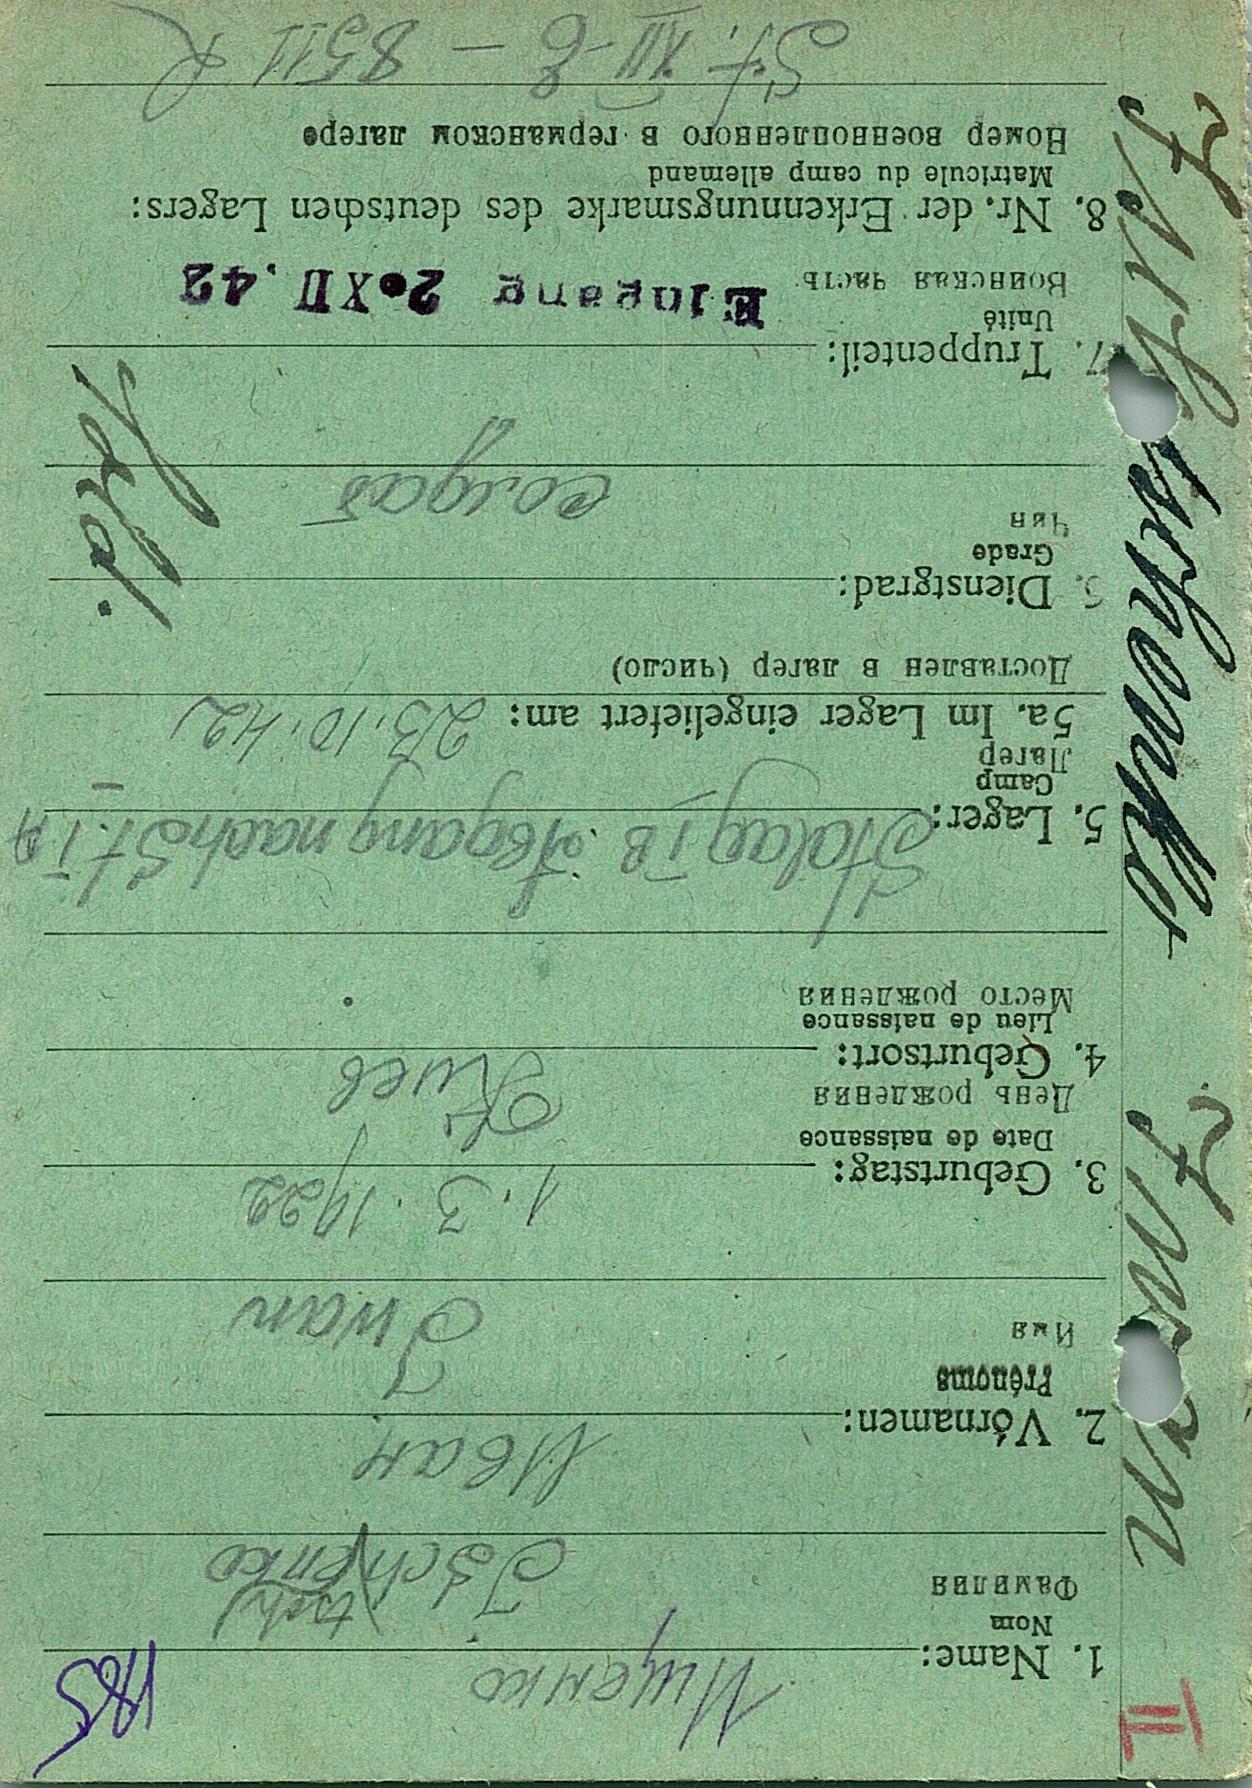 II
185
1. Name: Ищенко
Nom
tsch
Фамилия
Ischenko
2. Vornamen: Иван
Prénoms
Имя
Iwan
3. Geburtstag: 1. 3. 1922
Date de naissance
День рождения
4. Geburtsort: Киев
Lieu de naissance
Место рождения
5. Lager: Stalag I B. Abgang nach St. I A
Camp
Лагер
5a. Im Lager eingeliefert am: 23.10.42
Доставлен в лагер (число)
6. Dienstgrad:
Grade
Чин
солдат
Sold.
7. Truppenteil:
Unité
Воинская часть
Eingang 2. XII. 42
8. Nr. der Erkennungsmarke des deutschen Lagers:
Matricule du camp allemand
Номер военнопленного в германском лагере